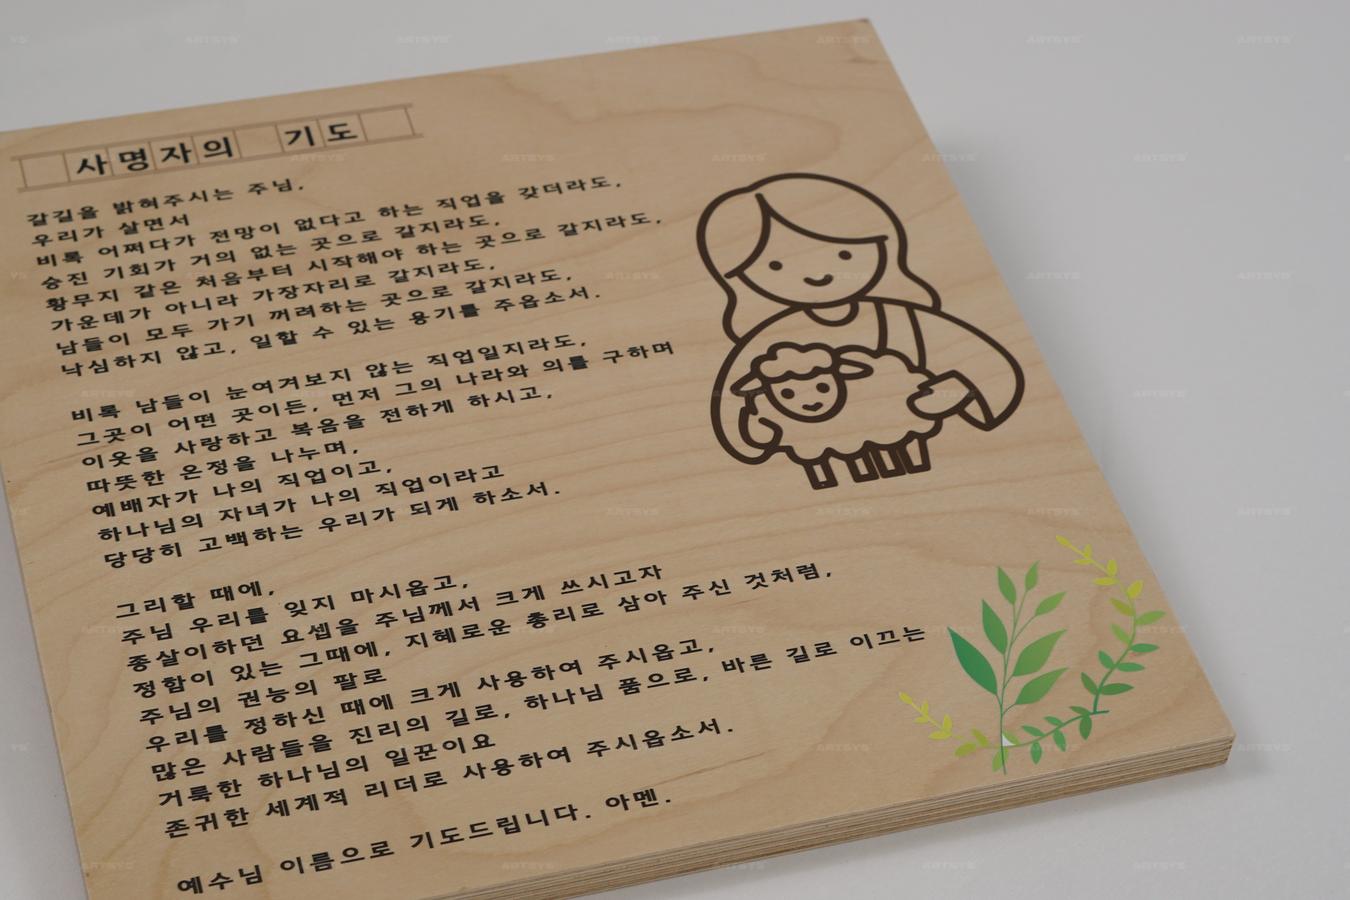 사명자의 기도
갈길을 밝혀주시는 주님,
우리가 살면서
비록 어쩌다가 전망이 없다고 하는 직업을 갖더라도,
승진 기회가 거의 없는 곳으로 갈지라도,
황무지 같은 처음부터 시작해야 하는 곳으로 갈지라도,
가운데가 아니라 가장자리로 갈지라도,
남들이 모두 가기 꺼려하는 곳으로 갈지라도,
낙심하지 않고, 일할 수 있는 용기를 주옵소서.
비록 남들이 눈여겨보지 않는 직업일지라도,
그곳이 어떤 곳이든, 먼저 그의 나라와 의를 구하며
이웃을 사랑하고 복음을 전하게 하시고,
따뜻한 온정을 나누며,
예배자가 나의 직업이고,
하나님의 자녀가 나의 직업이라고
당당히 고백하는 우리가 되게 하소서.
그리할 때에,
주님 우리를 잊지 마시옵고,
종살이하던 요셉을 주님께서 크게 쓰시고자
정함이 있는 그때에, 지혜로운 총리로 삼아 주신 것처럼,
주님의 권능의 팔로
우리를 정하신 때에 크게 사용하여 주시옵고,
많은 사람들을 진리의 길로, 하나님 품으로, 바른 길로 이끄는
거룩한 하나님의 일꾼이요
존귀한 세계적 리더로 사용하여 주시옵소서.
예수님 이름으로 기도드립니다. 아멘.
ARTSYS